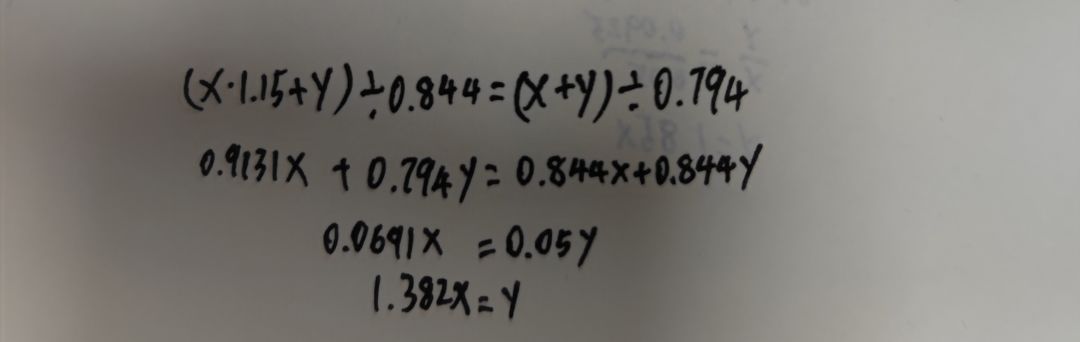 (X·1.15+Y)÷0.844=(X+Y)÷0.794
0.9131X + 0.794Y=0.844X+0.844Y
0.0691X =0.05Y
1.382X=Y